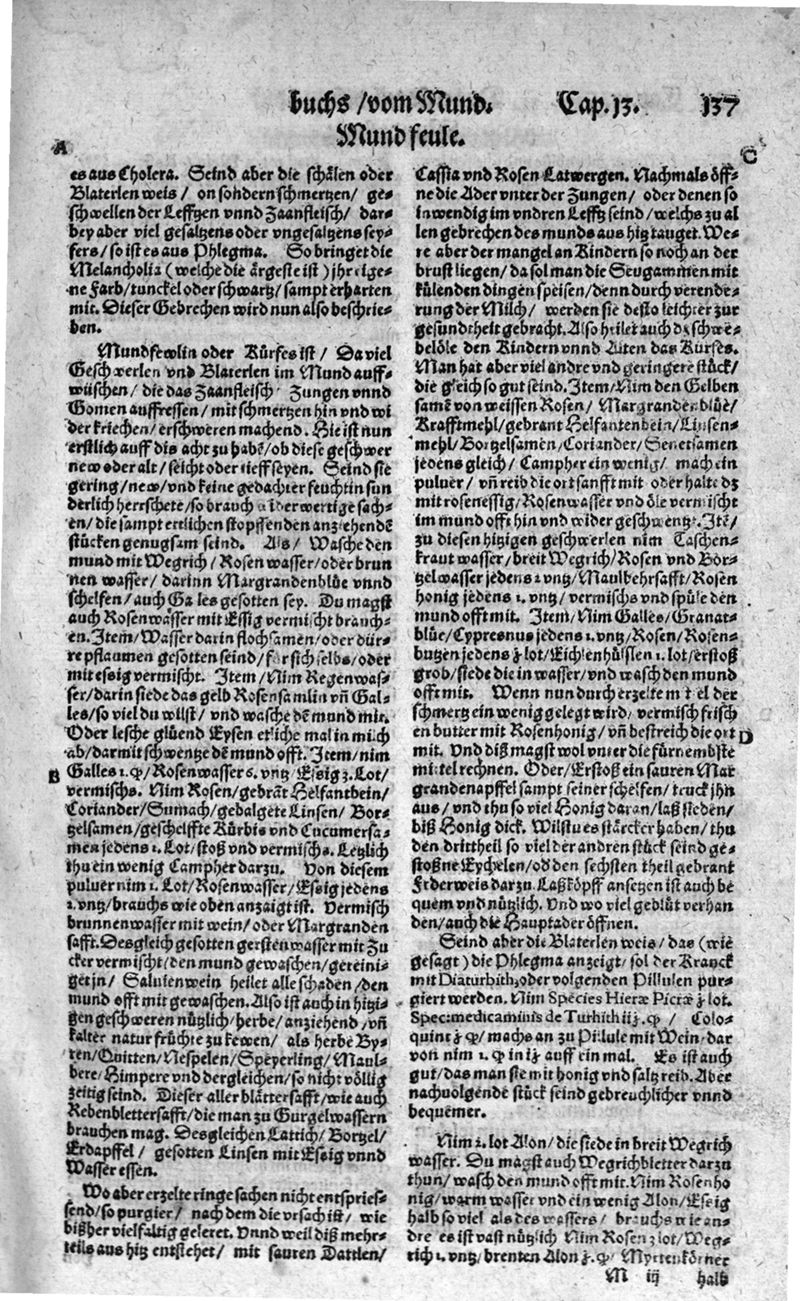 buchs / vom Mund. Cap. 13. 137
Mundfeule.
A
es aus Cholera. Seind aber die schälen oder
Blaterlen weis / on sondern schmertzen / ge-
schwellen der Lefftzen vnnd Zaanfleisch / dar-
bey aber viel gesaltzens oder vngesaltzens sey-
fers / so ist es aus Phlegma. So bringet die
Melancholia (welche die ärgeste ist) jhr eige-
ne Farb / tunckel oder schwartz / sampt erharten
mit. Dieser Gebrechen wird nun also beschrie-
ben.
Mundfewlin oder Kürfes ist / Da viel
Geschwerlen vnd Blaterlen im Mund auff-
wüschen / die das Zaanfleisch Zungen vnnd
Gomen auffressen / mit schmertzen hin vnd wi
der kriechen / erschweren machend. Hie ist nun
erstlich auff dis acht zu habē / ob diese geschwer
new oder alt / seicht oder tieff seyen. Seind sie
gering / new / vnd keine gedachter feuchtin sun
derlich herrschete / so brauch widerwertige sach-
en / die sampt etlichen stopffenden anziehendē
stücken genugsam seind. Als / Wasche den
mund mit Wegrich / Rosenwasser / oder brun
nen wasser / darinn Margrandenblüe vnnd
schelfen / auch Galles gesotten sey. Du magst
auch Rosenwasser mit Essig vermischt brauch-
en. Item / Wasser darin flochsamen / oder dür-
re pflaumen gesotten seind / für sich selbs / oder
mit essig vermischt. Item / Nim Regenwas-
ser / darin siede das gelb Rosensamlin vñ Gal-
les / so viel du wilst / vnd wasche dē mund mit.
Oder lesche glüend Eysen etliche mal in milch
ab / darmit schwentze dē mund offt. Item / nim
B
Galles 1. q / Rosenwasser 6. vntz / Essig 3. Lot /
vermischs. Nim Rosen / gebrāt Helfantbein /
Coriander / Sumach / gebalgete Linsen / Bor-
tzelsamen / geschelffte Kürbis vnd Cucumersa-
men jedens 1. Lot / stoß vnd vermischs. Letzlich
thu ein wenig Campher darzu. Von diesem
puluer nim 1. Lot / Rosenwasser / Essig jedens
1. vntz / brauchs wie oben anzaigt ist. Vermisch
brunnenwasser mit wein / oder Margranden
safft. Desgleich gesotten gerstenwasser mit Zu
cker vermischt / den mund gewaschen / gereini-
get jn / Saluienwein heilet alle schaden / den
mund offt mit gewaschen. Also ist auch in hitzi-
gen geschweren nützlich / herbe / anziehend / vñ
kalter natur früchte zu kewen / als herbe By-
ren / Quitten / Nespelen / Speyerling / Maul-
bere / Himpere vnd dergleichen / so nicht völlig
zeitig seind. Dieser aller blättersafft / wie auch
Rebenblettersafft / die man zu Gurgelwassern
brauchen mag. Desgleichen Lattich / Bortzel /
Erdapffel / gesotten Linsen mit Essig vnnd
Wasser essen.
Wo aber erzelte ringe sachen nicht entspries-
send / so purgier / nach dem die vrsach ist / wie
bißher vielfaltig geleret. Vnnd weil diß mehr-
teils aus hitz entstehet / mit sauren Dattlen /
C
Cassia vnd Rosen Latwergen. Nachmals öff-
ne die Ader vnter der Zungen / oder denen so
inwendig im vndren Lefftz seind / welchs zu al
len gebrechen des munds aus hitz tauget. We-
re aber der mangel an Kindern so noch an der
brust liegen / da sol man die Seugammen mit
külenden dingen speisen / denn durch verende-
rung der Milch / werden sie desto leichter zur
gesundtheit gebracht. Also heilet auch dz schwe-
belöle den Kindern vnnd Alten das Kürfes.
Man hat aber viel andre vnd geringere stück /
die gleich so gut seind. Item / Nim den Gelben
samē von weissen Rosen / Margrandenblüe /
Krafftmehl / gebrant Helfantenbein / Linsen-
mehl / Bortzelsamen / Coriander / Senetsamen
jedens gleich / Campher ein wenig / mach ein
puluer / vñ reib die ort sanfft mit oder halte dz
mit rosenessig / Rosenwasser vnd öle vermischt
im mund offt hin vnd wider geschwentzt. Itē /
zu diesen hitzigen geschwerlen nim Taschen-
kraut wasser / breit Wegrich / Rosen vnd Bor-
tzelwasser jedens 2 vntz / Maulbehrsafft / Rosen
honig jedens 1. vntz / vermischs vnd spüle den
mund offt mit. Item / Nim Galles / Granat-
blüe / Cypresnus jedens 1. vntz / Rosen / Rosen-
butzen jedens ʒ lot / Eichlenhülsen 1. lot / erstoß
grob / siede die in wasser / vnd wasch den mund
offt mit. Wenn nun durch erzelte mittel der
schmertz ein wenig gelegt wird / vermisch frisch
en butter mit Rosenhonig / vñ bestreich die ort
D
mit. Vnd diß magst wol vnter die fürnembste
mittel rechnen. Oder / Erstoß ein sauren Mar
grandenapffel sampt seiner schelfen / truck jhn
aus / vnd thu so viel Honig daran / laß sieden /
biß Honig dick. Wilstu es stärcker haben / thu
den drittheil so viel der andren stück seind ge-
stoßne Eychelen / od̄ den sechsten theil gebrant
Federweis darzu. Laßköpff ansetzen ist auch be
quem vnd nützlich. Vnd wo viel geblüt verhan
den / auch die Hauptader öffnen.
Seind aber die Blaterlen weis / das (wie
gesagt) die Phlegma anzeigt / sol der Kranck
mit Diaturbith, oder volgenden Pillulen pur-
giert werden. Nim Species Hieræ Picræ ʒ lot.
Spec: medicaminis de Turbith iiʒ. q / Colo-
quint ʒ q / machs an zu Pillule mit Wein / dar
von nim 1. q in iʒ auff ein mal. Es ist auch
gut / das man sie mit honig vnd saltz reib. Aber
nachuolgende stück seind gebreuchlicher vnnd
bequemer.
Nim 2. lot Alon / die siede in breit Wegrich
wasser. Du magst auch Wegrichbletter darzu
thun / wasch den mund offt mit. Nim Rosenho
nig / warm wasser vnd ein wenig Alon / Essig
halb so viel als des wassers / brauchs wie an-
dre es ist vast nützlich Nim Rosen 2 lot / Weg-
rich 1. vntz / brenten Alon ʒ. q / Myrtenkörner
M iij halb